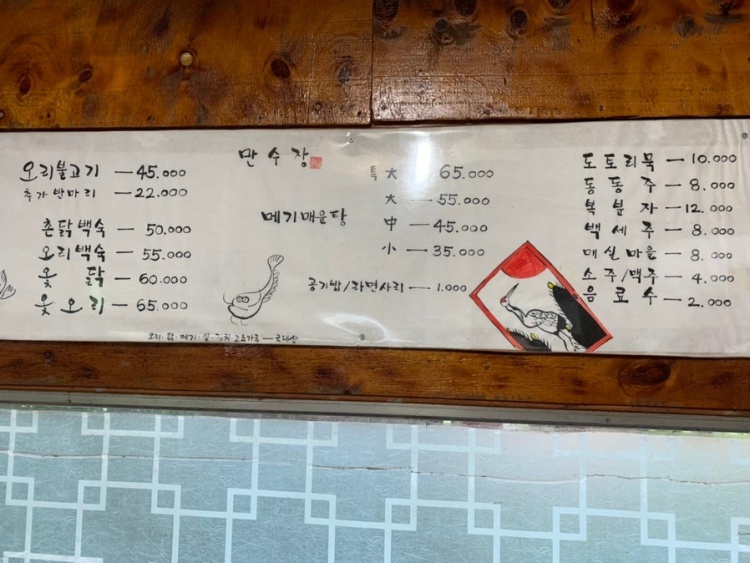 만수장
오리불고기 — 45.000
추가 반마리 — 22.000
촌닭백숙 — 50.000
오리백숙 — 55.000
옻 닭 — 60.000
옻 오리 — 65.000
메기매운탕
특大 65.000
大 — 55.000
中 — 45.000
小 — 35.000
공기밥/라면사리 — 1.000
도토리묵 — 10.000
동동주 — 8.000
복분자 — 12.000
백세주 — 8.000
매실마을 — 8.000
소주/맥주 — 4.000
음료수 — 2.000
오리·닭·메기·쌀·김치 고추가루 — 국내산